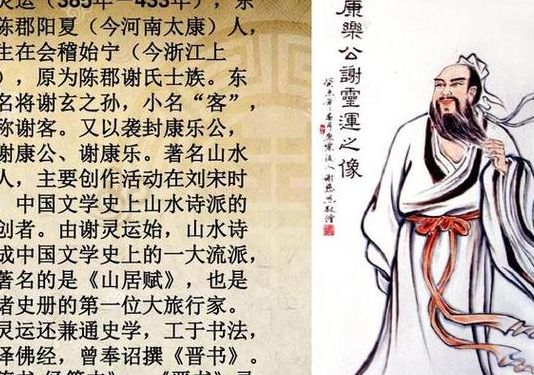 灵运（385年－433年），东
陈郡阳夏（今河南太康）人，
生在会稽始宁（今浙江上
），原为陈郡谢氏士族。东
名将谢玄之孙，小名“客”，
称谢客。又以袭封康乐公，
谢康公、谢康乐。著名山水
人，主要创作活动在刘宋时
中国文学史上山水诗派的
创者。由谢灵运始，山水诗
成中国文学史上的一大流派，
著名的是《山居赋》，也是
诸史册的第一位大旅行家。
灵运还兼通史学，工于书法，
译佛经，曾奉诏撰《晋书》。
康樂公謝靈運之像